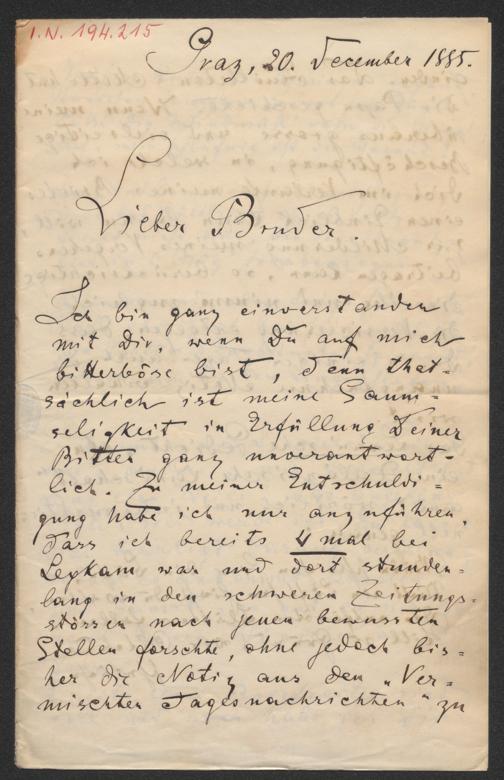 I.N. 194.215
Graz, 20. December 1885.
Lieber Bruder.
Ich bin ganz einverstanden
mit Dir, wenn Du auf mich
bitterböse bist, denn that-
sächlich ist meine Saum-
seligkeit in Erfüllung Deiner
Bitten ganz unverantwort-
lich. Zu meiner Entschuldi=
gung habe ich nur anzuführen,
dass ich bereits 4 mal bei
Leykam war und dort stunden=
lang in den schweren Zeitungs=
stössen nach jenen bewussten
Stellen forschte, ohne jedoch bis=
her die Notiz aus den „Ver=
mischten Tagesnachrichten“ zu